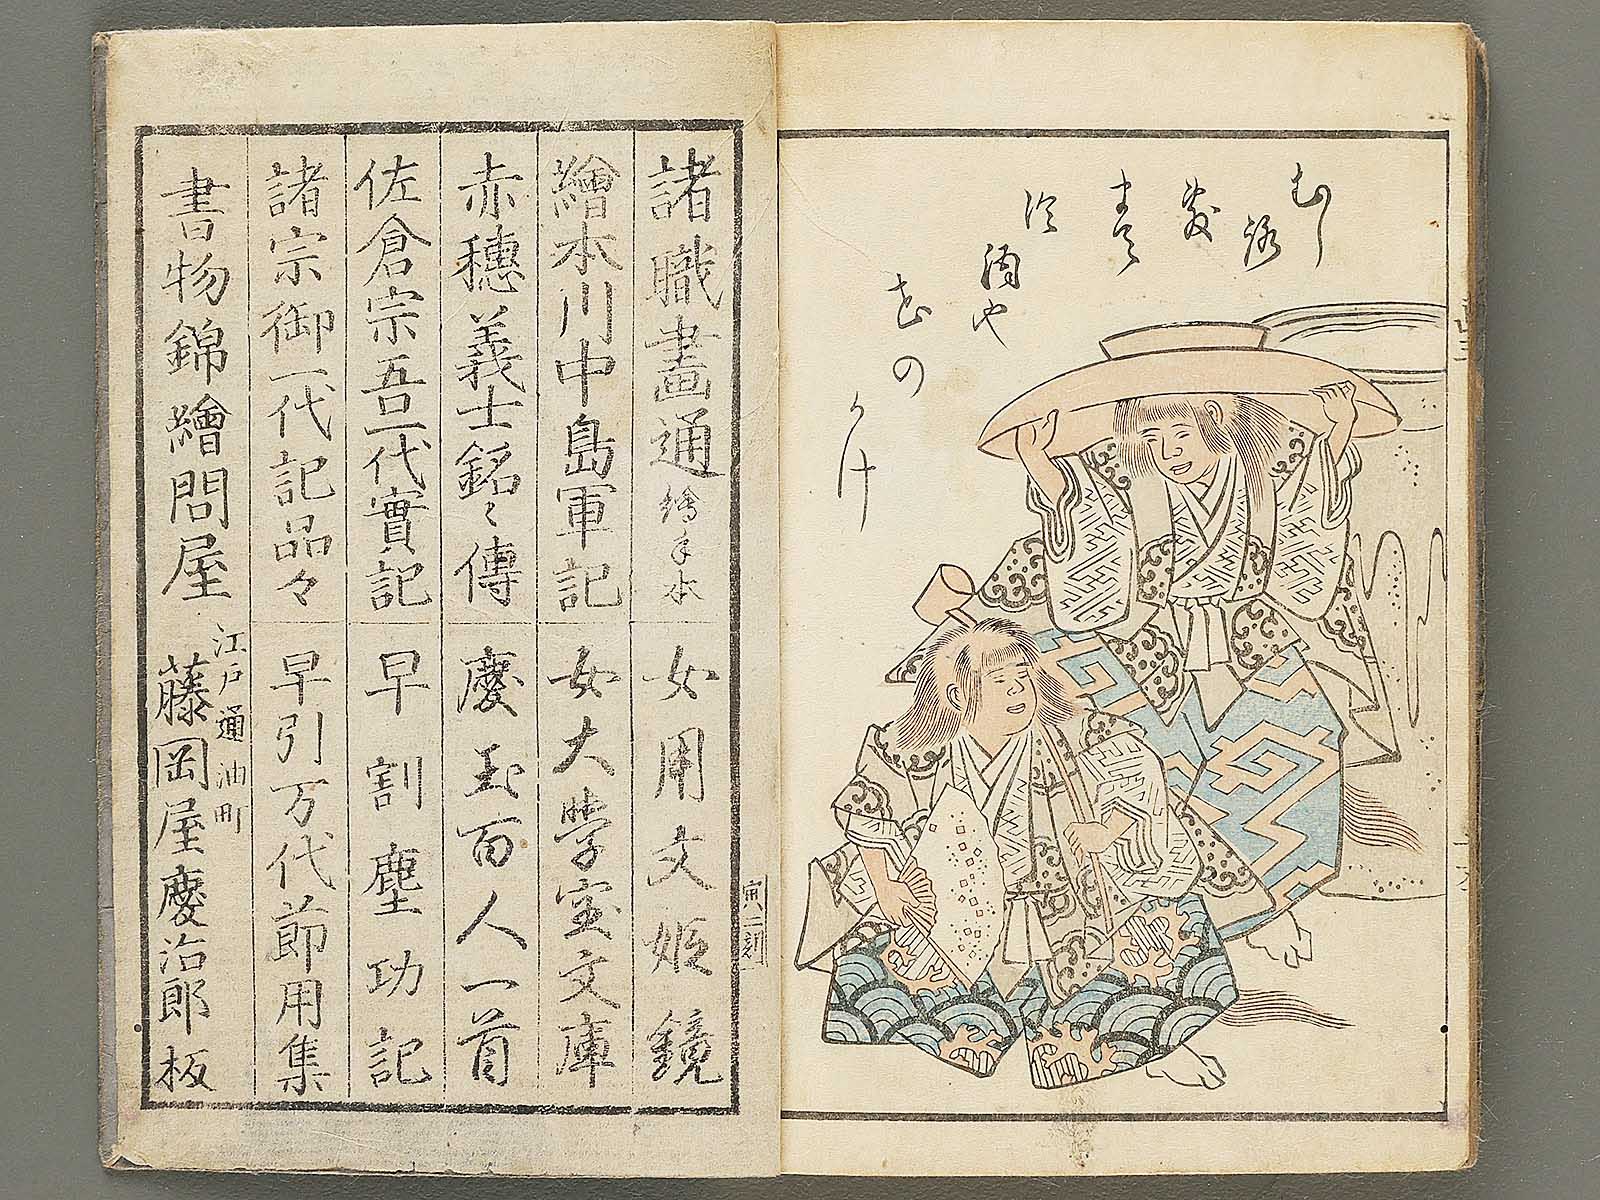 むし
諸職畫通 繪手本
女用文姫鏡
繪本川中島軍記
女大學宝文庫
赤穗義士銘〻傳
慶玉百人一首
佐倉宗吾一代實記
早割塵功記
諸宗御一代記品々
早引万代節用集
書物錦繪問屋
江戸通油町
藤岡屋慶治郎板
寅二刻